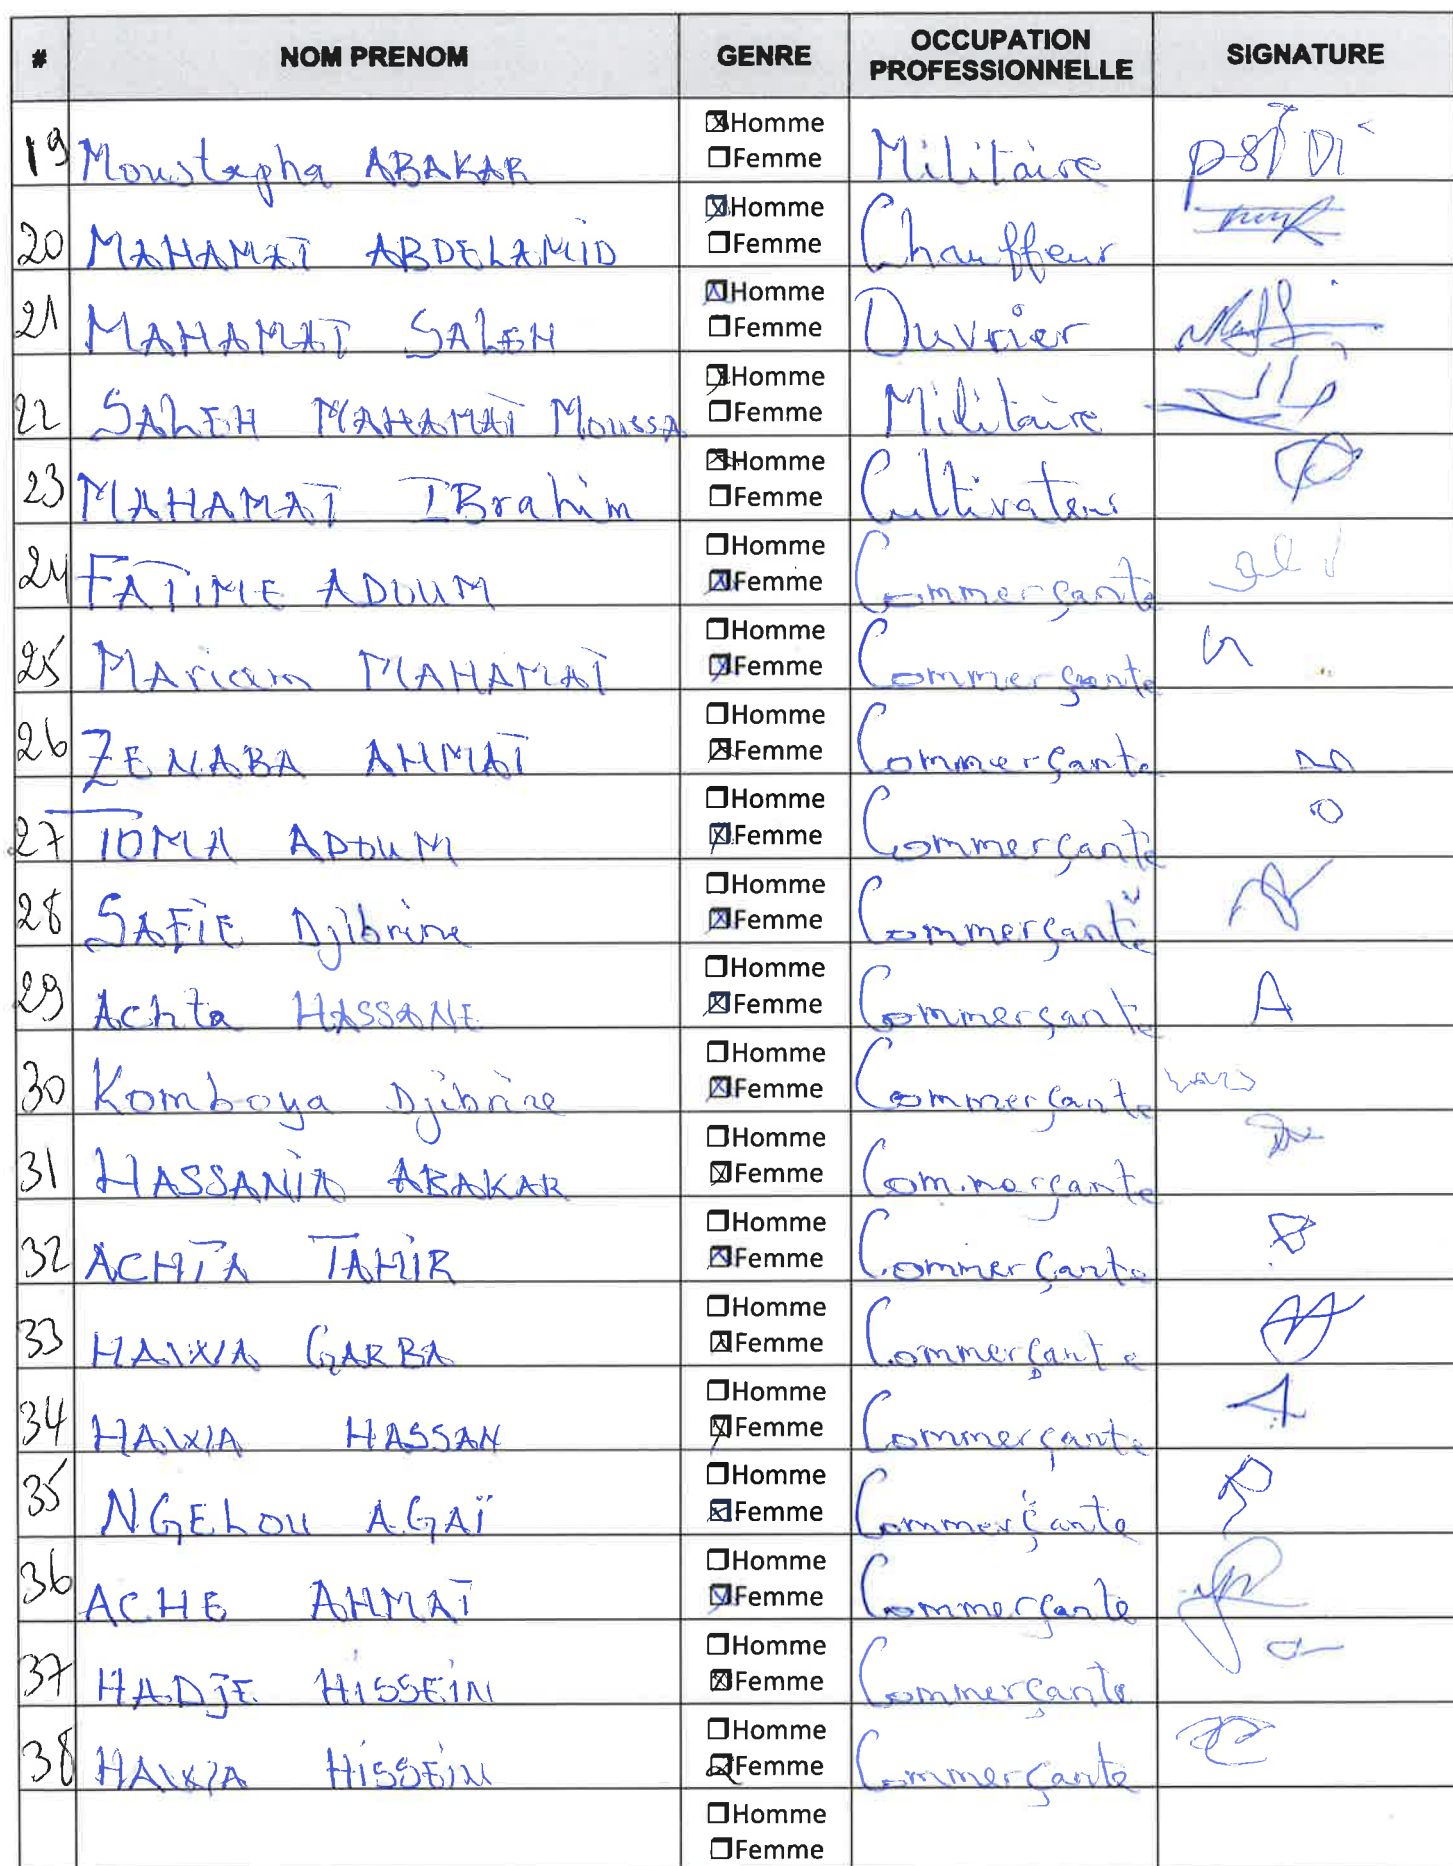 # NOM PRENOM GENRE OCCUPATION PROFESSIONNELLE SIGNATURE
19 Moustapha ABAKAR ☒Homme ☐Femme Militaire
20 MAHAMAT ABDELAMID ☒Homme ☐Femme Chauffeur
21 MAHAMAT SALEH ☒Homme ☐Femme Ouvrier
22 SALEH MAHAMAT Moussa ☒Homme ☐Femme Militaire
23 MAHAMAT IBrahim ☒Homme ☐Femme Cultivateur
24 FATIME ADOUM ☐Homme ☒Femme Commerçante
25 MAriam MAHAMAT ☐Homme ☒Femme Commerçante
26 ZENABA AHMAT ☐Homme ☒Femme Commerçante
27 TOMA ADOUM ☐Homme ☒Femme Commerçante
28 SAFIE Djibrine ☐Homme ☒Femme Commerçante
29 Achta HASSANE ☐Homme ☒Femme Commerçante A
30 Komboya Djibrine ☐Homme ☒Femme Commerçante
31 HASSANIA ABAKAR ☐Homme ☒Femme Commerçante
32 ACHTA TAHIR ☐Homme ☒Femme Commerçante
33 HAWA GARBA ☐Homme ☒Femme Commerçante
34 HAWA HASSAN ☐Homme ☒Femme Commerçante
35 NGELOU AGAÏ ☐Homme ☒Femme Commerçante
36 ACHE AHMAT ☐Homme ☒Femme Commerçante
37 HADJE HISSEIN ☐Homme ☒Femme Commerçante
38 HAWA HISSEIN ☐Homme ☒Femme Commerçante
☐Homme ☐Femme